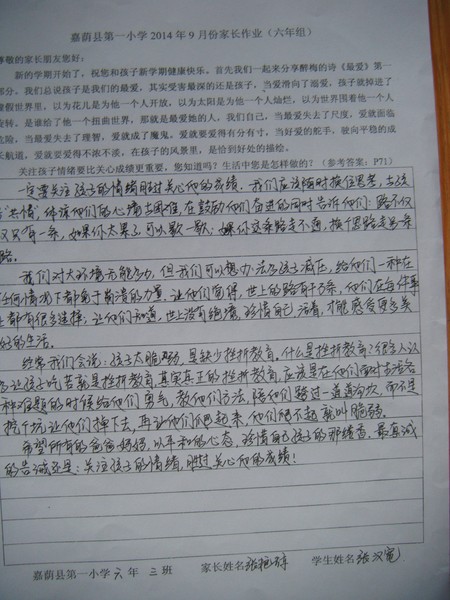 嘉荫县第一小学2014年9月份家长作业（六年组）
尊敬的家长朋友您好：
新的学期开始了，祝您和孩子新学期健康快乐。首先我们一起来分享醉梅的诗《最爱》第一
部分。我们总说孩子是我们的最爱，其实受害最深的还是孩子，当爱滑向了溺爱，孩子就掉进了
虚假世界里，以为花儿是为他一个人开放，以为太阳是为他一个人灿烂，以为世界围着他一个人
旋转。是谁给了他一个扭曲世界，那就是最爱她的人，我们自己，当最爱失去了尺度，爱就面临
危险，当最爱失去了理智，爱就成了魔鬼，爱就要爱得有分有寸，当好爱的舵手，驶向平稳的成
长航道，爱就要爱得不浓不淡，在孩子的风景里，是恰到好处的描绘。
关注孩子情绪要比关心成绩更重要，您知道吗？生活中您是怎样做的？（参考答案：P71）
一定要关注孩子的情绪胜过关心他的成绩。我们应该随时换位思考，去读
"共情"体谅他们的心痛与困难，在鼓励他们奋进的同时告诉他们：路不仅
仅只有一条，如果你太累了可以歇一歇；如果你这条路走不通，换个思路走另一条
路。
我们对大环境无能为力，但我们可以想办法为孩子减压，给他们一种在
任何情况下都勇于前进的力量，让他们觉得，世上的路有千万条，他们在每件事
上都有很多选择；让他们知道，世上没有绝境，珍惜自己，活着，才能感受更多美
好的生活。
经常我们会说：孩子太脆弱，是缺少挫折教育。什么是挫折教育？很多人认
为让孩子吃苦就是挫折教育，其实真正的挫折教育，应该是在他们面对生活各
种难题的时候给他们勇气，教他们方法，陪他们跨过一道道沟坎，而不是
挖个坑让他们掉下去，再让他们爬起来，他们爬不起就叫脆弱。
希望所有的爸爸妈妈，以平和的心态，珍惜自己孩子的那绪查，最真诚
的告诫还是：关注孩子的情绪，胜过关心他的成绩！
嘉荫县第一小学六年三班 家长姓名张 学生姓名张汉宽